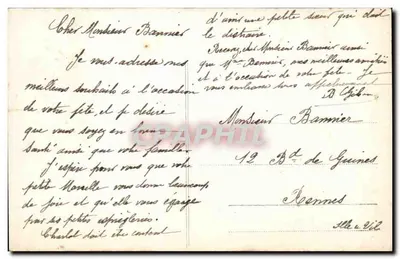 Cher Monsieur Bannier
Je vous adresse mes
meilleurs souhaits à l'occasion
de votre fête, et je désire
que vous soyez en bonne
santé ainsi que votre famille.
J'espère pour vous que votre
petite vous donne beaucoup
de joie et qu'elle vous égaye
par ses petites espiègleries.
Charlot doit être content
d'avoir une petite sœur qui doit
le distraire.
Recevez cher Monsieur Bannier ainsi
que Mme Bannier, mes meilleures amitiés
et à l'occasion de votre fête. Je
vous embrasse bien affectueusement
Monsieur Bannier
12 Bd de Guines
Rennes
Ille & Vil
DELCAMPE